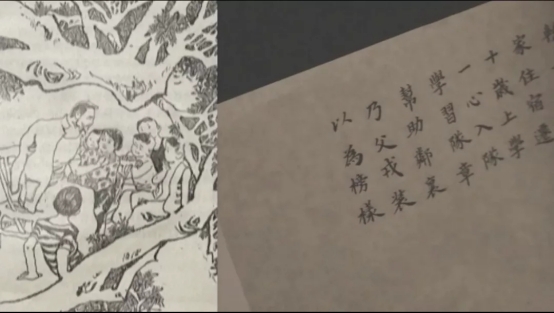 家住宿遷
十歲上學
一心入隊
學習隊章
幫助鄰裏
乃父戎裝
以為榜樣